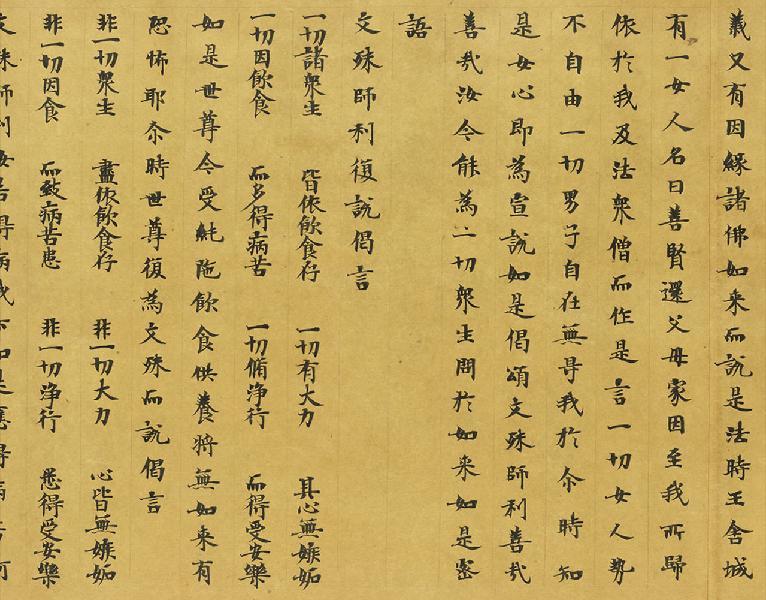 義又有因緣諸佛如来而説是法時王舍城
有一女人名曰善賢還父母家因至我所歸
依於我及法衆僧而作是言一切女人勢
不自由一切男子自在無㝵我於尒時知
是女心即為宣説如是偈頌文殊師利善㢤
善㢤汝今能為一切衆生問於如来如是密
語
文殊師利復説偈言
一切諸衆生 皆依飲食存 一切有大力 其心無嫉妬
一切因飲食 而多得病苦 一切脩淨行 而得受安樂
如是世尊今受純陁飲食供養將無如来有
恐怖耶尒時世尊復為文殊而説偈言
非一切衆生 盡依飲食存 非一切大力 心皆無嫉妬
非一切因食 而致病苦患 非一切淨行 悉得受安樂
文殊師利汝若得病我